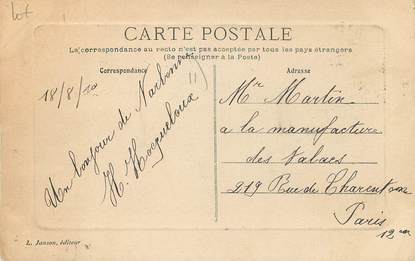 lot
CARTE POSTALE
La correspondance au recto n'est pas acceptée par tous les pays étrangers
(Se renseigner à la Poste)
Correspondance
Adresse
18/8/10
Un bonjour de Narbonne
H.
Mr Martin
a la manufacture
des Valaes
219 Rue de Charentonne
Paris
12 em
L. Jansou, éditeur